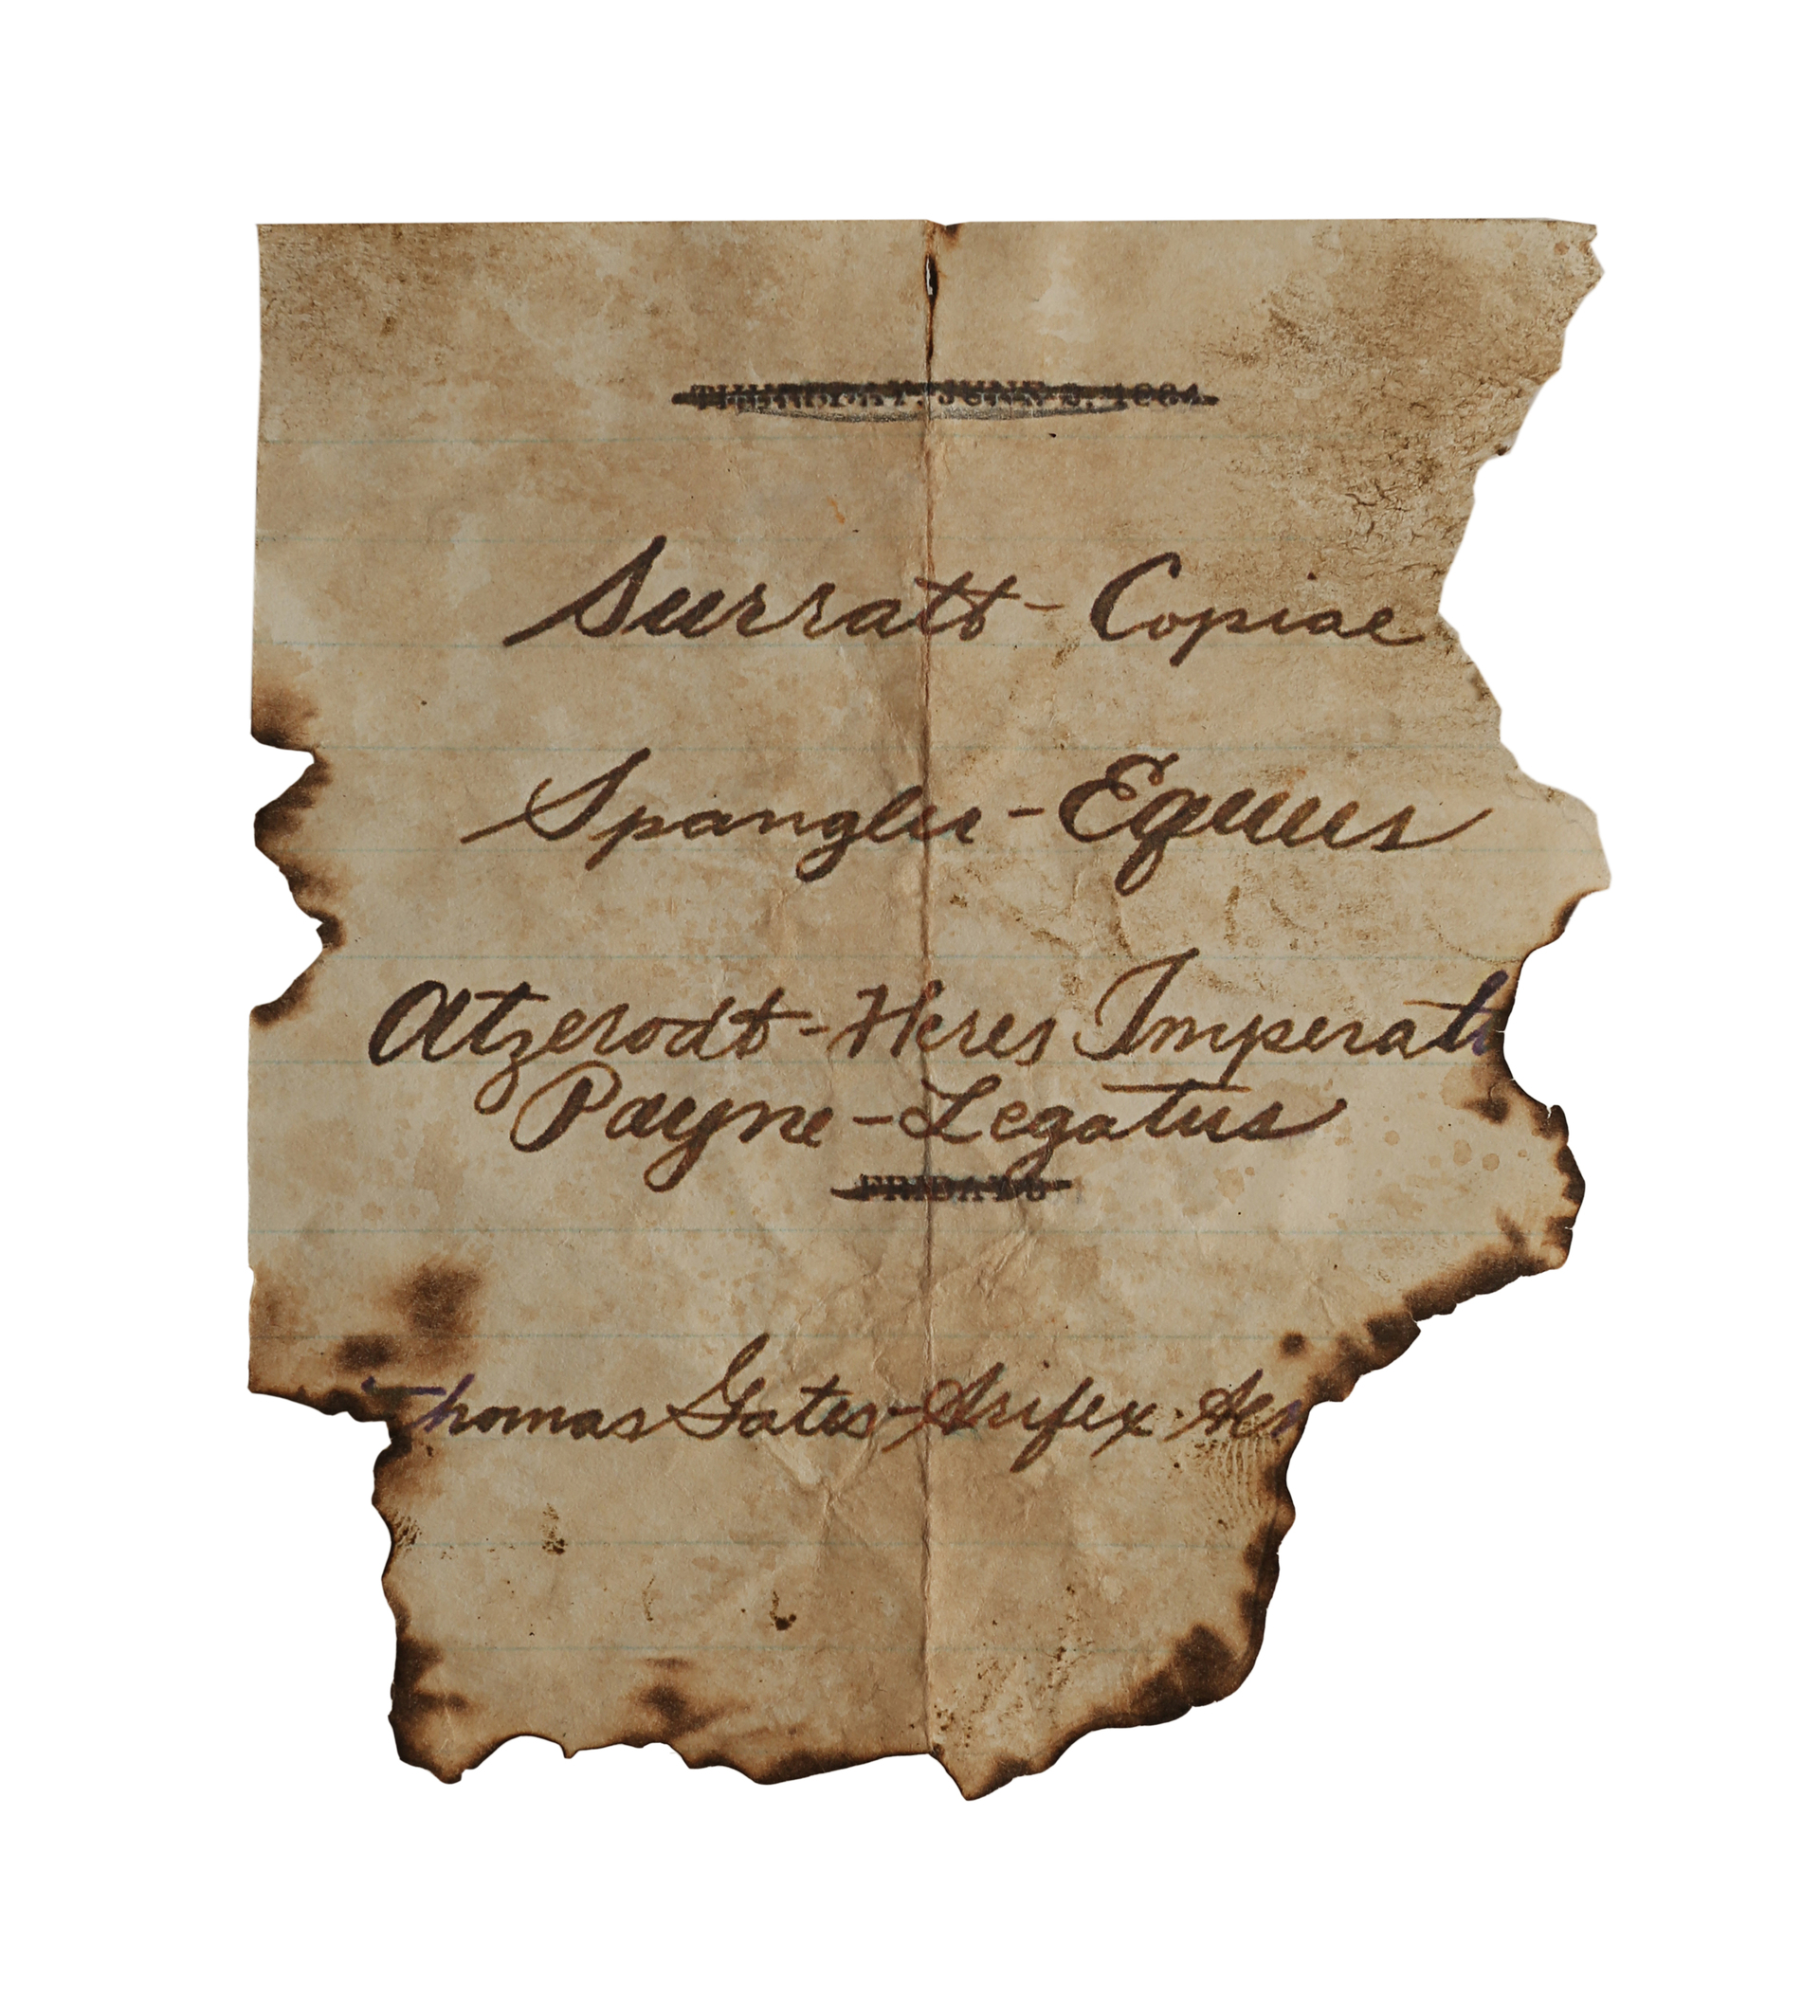 THURSDAY, JUNE 2, 1864
Surratt - Copiae
Spangler - Equus
Atzerodt - Heres Imperat
Payne - Legatus
FRIDAY 3
Thomas Gates - Arifex Aer